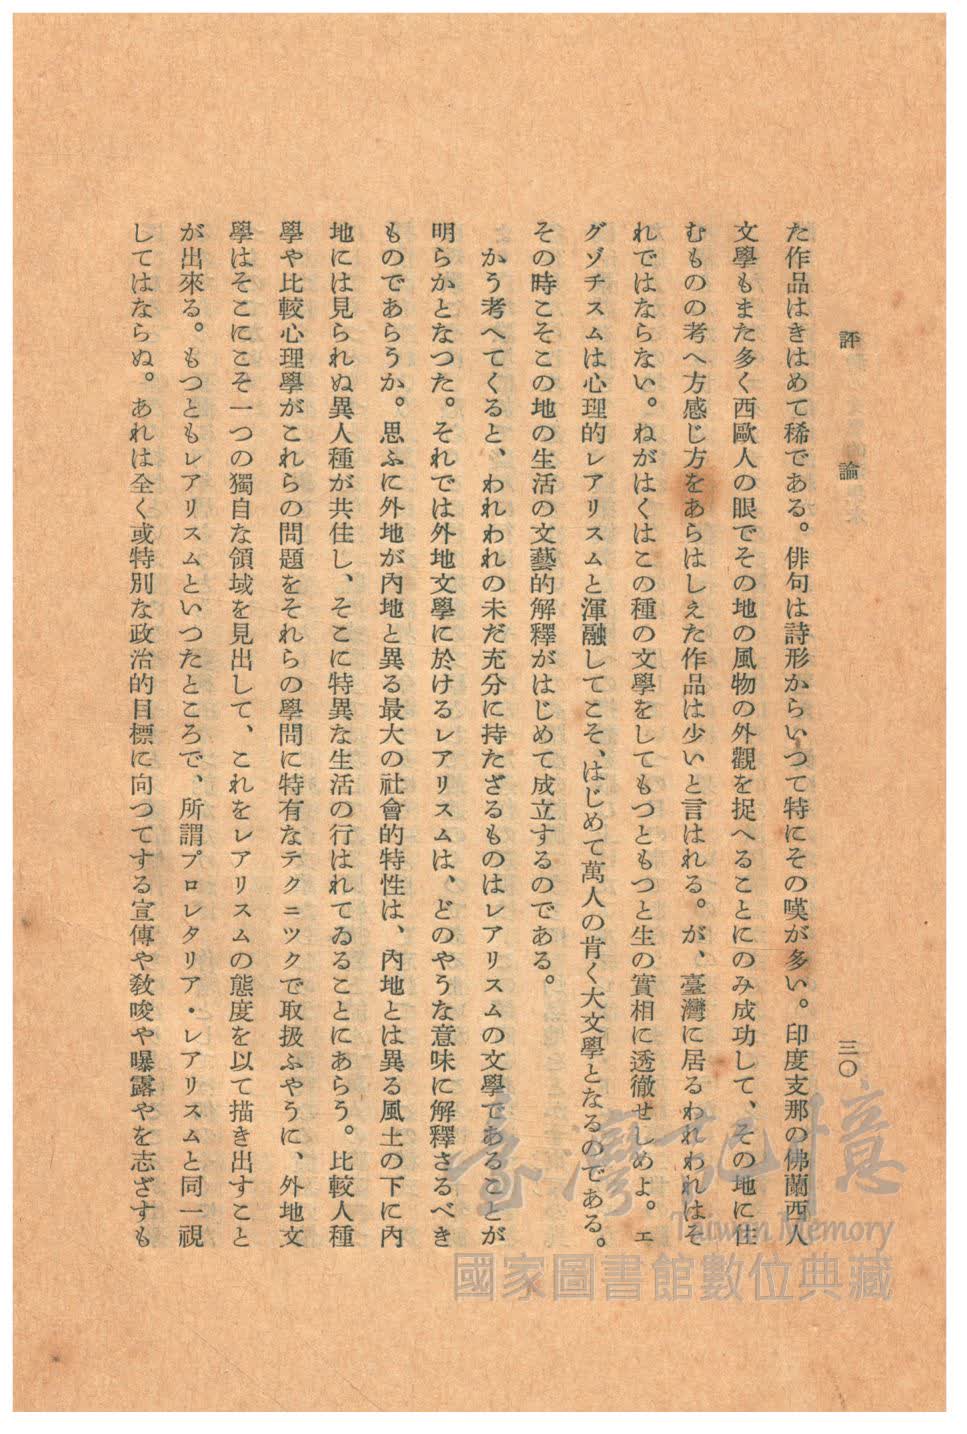 評論
三〇
た作品はきはめて稀である。俳句は詩形からいつて特にその嘆が多い。印度支那の佛蘭西人
文學もまた多く西歐人の眼でその地の風物の外觀を捉へることにのみ成功して、その地に住
むものの考へ方感じ方をあらはしえた作品は少いと言はれる。が、臺灣に居るわれわれはそ
れではならない。ねがはくはこの種の文學をしてもつともつと生の實相に透徹せしめよ。エ
グゾチスムは心理的レアリスムと渾融してこそ、はじめて萬人の肯く大文學となるのである。
その時こそこの地の生活の文藝的解釋がはじめて成立するのである。
かう考へてくると、われわれの未だ充分に持たざるものはレアリスムの文學であることが
明らかとなつた。それでは外地文學に於けるレアリスムは、どのやうな意味に解釋さるべき
ものであらうか。思ふに外地が內地と異る最大の社會的特性は、內地とは異る風土の下に內
地には見られぬ異人種が共住し、そこに特異な生活の行はれてゐることにあらう。比較人種
學や比較心理學がこれらの問題をそれらの學問に特有なテクニツクで取扱ふやうに、外地文
學はそこにこそ一つの獨自な領域を見出して、これをレアリスムの態度を以て描き出すこと
が出來る。もつともレアリスムといつたところで、所謂プロレタリア・レアリスムと同一視
してはならぬ。あれは全く或特別な政治的目標に向つてする宣傳や敎唆や曝露やを志ざすも
臺灣記憶
Taiwan Memory
國家圖書館數位典藏